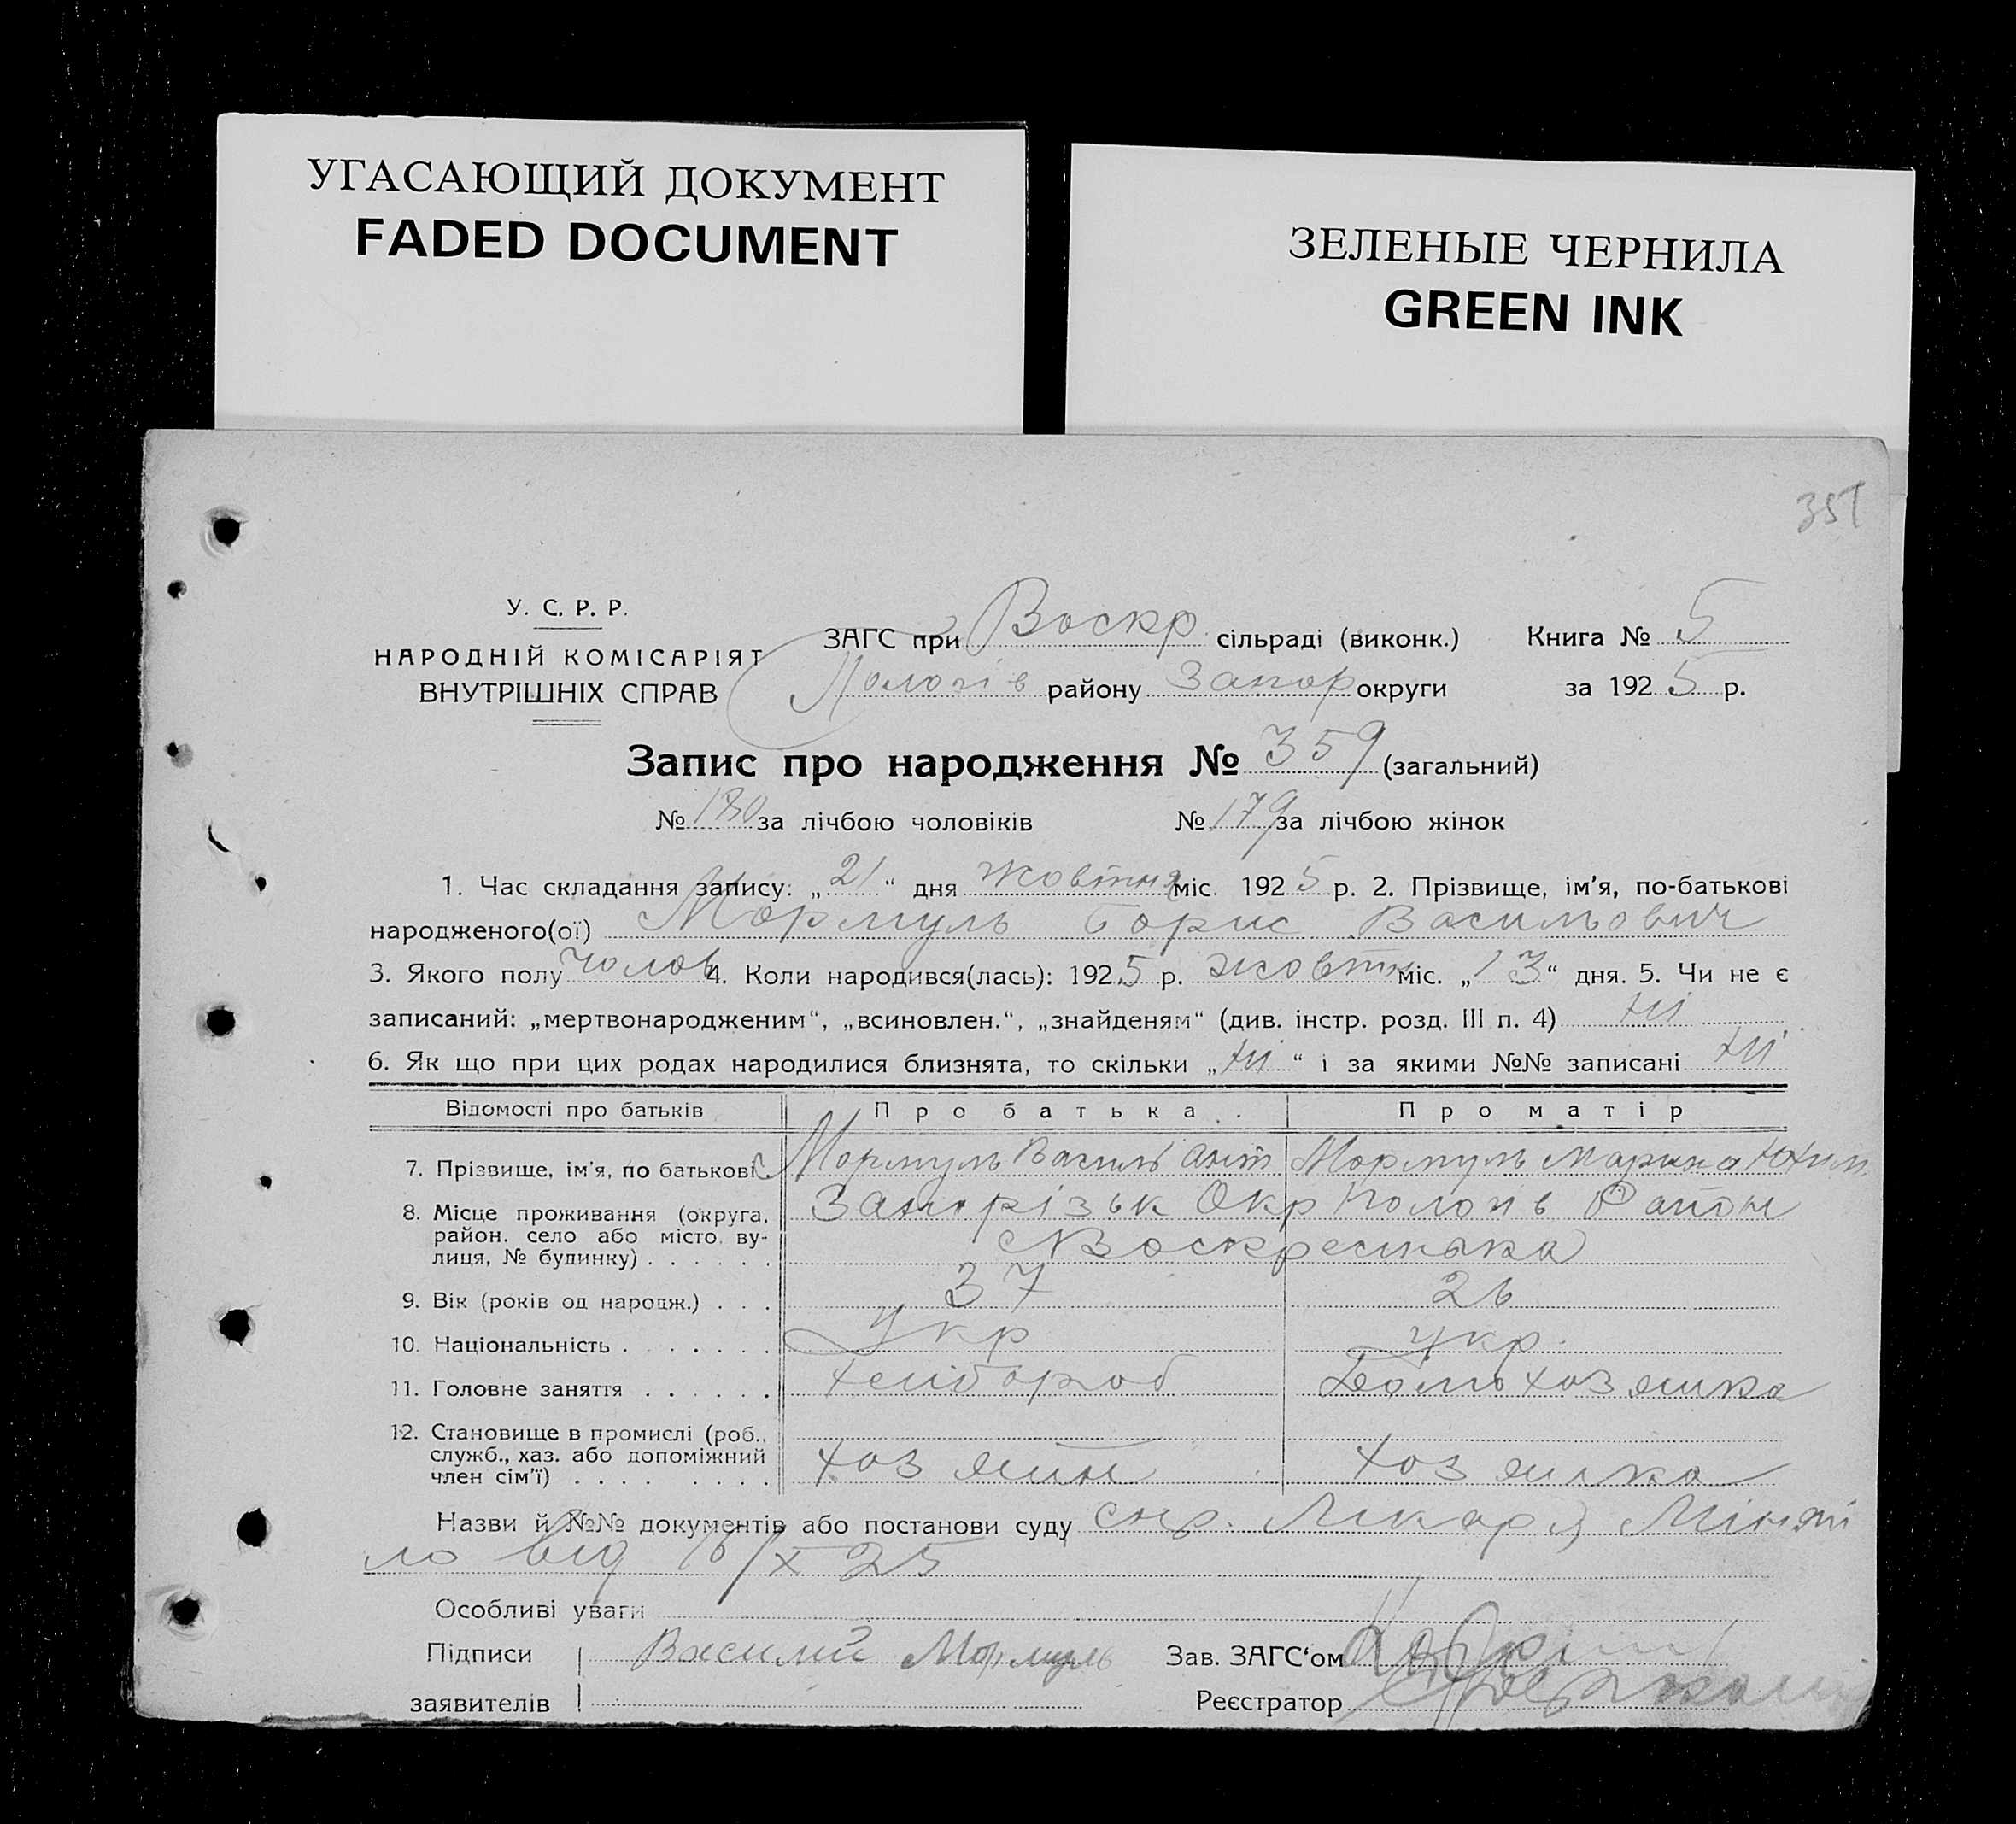 УГАСАЮЩИЙ ДОКУМЕНТ
FADED DOCUMENT
ЗЕЛЕНЫЕ ЧЕРНИЛА
GREEN INK
351
У. С. Р. Р.
НАРОДНІЙ КОМІСАРІЯТ
ВНУТРІШНІХ СПРАВ
ЗАГС при Воскр сільраді (виконк.) Книга № 5
Пологів району Запор округи за 1925 р.
Запис про народження № 359 (загальний)
№ 180 за лічбою чоловіків № 179 за лічбою жінок
1. Час складання запису: „21“ дня жовтня міс. 1925 р. 2. Прізвище, ім’я, по-батькові
народженого(ої) Мормуль Борис Васильович
3. Якого полу чолов 4. Коли народився(лась): 1925 р. жовтн міс. „13“ дня. 5. Чи не є
записаний: „мертвонародженим“, „всиновлен.“, „знайденям“ (див. інстр. розд. III п. 4) ні
6. Як що при цих родах народилися близнята, то скільки „ні“ і за якими №№ записані ні
Відомості про батьків Про батька. Про матір
7. Прізвище, ім’я, по батькові Мормуль Василь Ант Мормуль Марина Юхим
8. Місце проживання (округа, Запорізьк Окр Пологів Район
район. село або місто. ву- Воскресенка
лиця, № будинку) . . . . . .
9. Вік (років од народж.) . . . 37 26
10. Національність . . . . . . . Укр укр.
11. Головне заняття . . . . . . хлібороб Домохозяйка
12. Становище в промислі (роб.,
служб., хаз. або допоміжний хозяин хозяйка
член сім’ї) . . . . . . . .
Назви й №№ документів або постанови суду спр. Лікаря
від /X 25
Особливі уваги
Підписи Василий Мормуль Зав. ЗАГС‘ом
заявителів Реєстратор